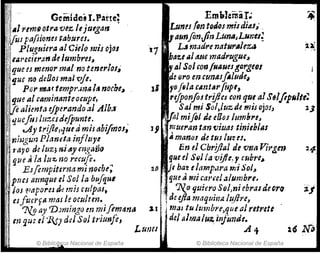 Gemidos I. Parte:
al remo otra vez le juegan
sus passiones tahures.
Pluguiera al Cielo mis ojos 17
carecieran de lumbres,
que es menor mal no tenerlos,
que no dellos mal vse.
Por mas temprana la noche, 18
que al caminante ocupe,
se alienta esperando al Alba
que sus luzes despunte.
Ay triste, que à mis abismos, 19
ningun Planeta influye
rayo de luz; ni ay engaño
que à la luz no recuse.
Es sempiterna mi noche, 20
pues aunque el Sol la busque
los vapores de mis culpas,
es fuerça mas le oculten.
No ay Domingo en mi semana 21
en que el Rey del Sol triunfe,
Lunes
Emblema I:
Lunes son todos mis dias;
y aun son sin Luna, Lunes:
La madre naturaleza 22
haze al aue madrugue,
y al Sol con suaues gorgeos
de oro en cunas salude,
yo sula cantar supe,
responsos tristes con que al Sol sepulte:
Sal mi Sol, luz de mis ojos, 23
sal mi sol de ellos lumbre,
mueran tan viuas tinieblas
à manos de tus luzes.
En el Christal de vna Virgen 24
que el Sol la viste, y cubre,
se haze la lampara mi Sol,
que à mi carcel alumbre.
No quiero Sol, ni ebras de oro 25
de essa maquina lustre,
mas tu lumbre, que al retrete
del alma luz infunde.
A 4 26 No
© Biblioteca Nacional de España
© Biblioteca Nacional de España